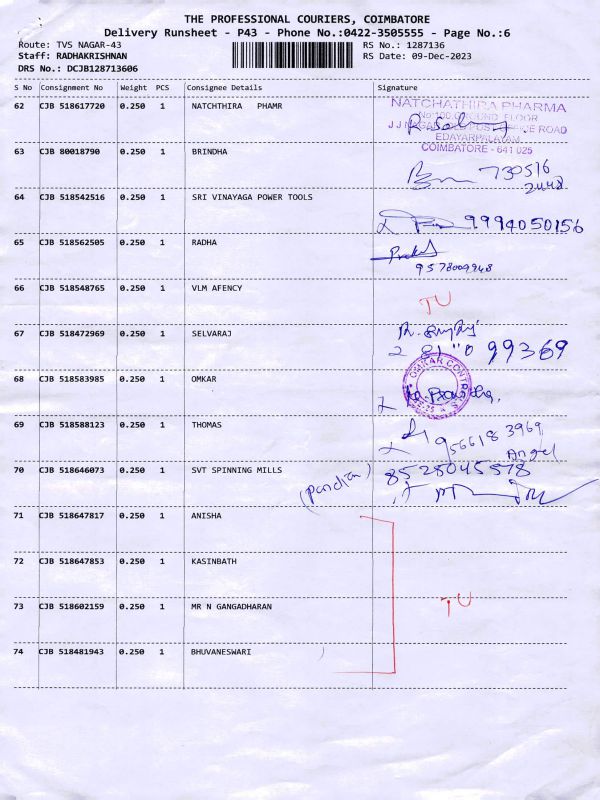 THE PROFESSIONAL COURIERS, COIMBATORE
Delivery Runsheet - P43 - Phone No.:0422-3505555 - Page No.:6
Route: TVS NAGAR-43
RS No.: 1287136
Staff: RADHAKRISHNAN
RS Date: 09-Dec-2023
DRS No.: DCJB128713606
S No Consignment No Weight PCS Consignee Details Signature
62 CJB 518617720 0.250 1 NATCHTHIRA PHAMR
NATCHATHIRA PHARMA
GROUND FLOOR
EDAYARPALAYAM
COIMBATORE - 641 025
63 CJB 80018790 0.250 1 BRINDHA
730516
2448
64 CJB 518542516 0.250 1 SRI VINAYAGA POWER TOOLS
9994050156
65 CJB 518562505 0.250 1 RADHA
9578009948
66 CJB 518548765 0.250 1 VLM AFENCY
TU
67 CJB 518472969 0.250 1 SELVARAJ
99369
68 CJB 518583985 0.250 1 OMKAR
69 CJB 518588123 0.250 1 THOMAS
9566183969
Angel
70 CJB 518646073 0.250 1 SVT SPINNING MILLS
(Pandian) 8528045578
71 CJB 518647817 0.250 1 ANISHA
72 CJB 518647853 0.250 1 KASINBATH
73 CJB 518602159 0.250 1 MR N GANGADHARAN
TU
74 CJB 518481943 0.250 1 BHUVANESWARI